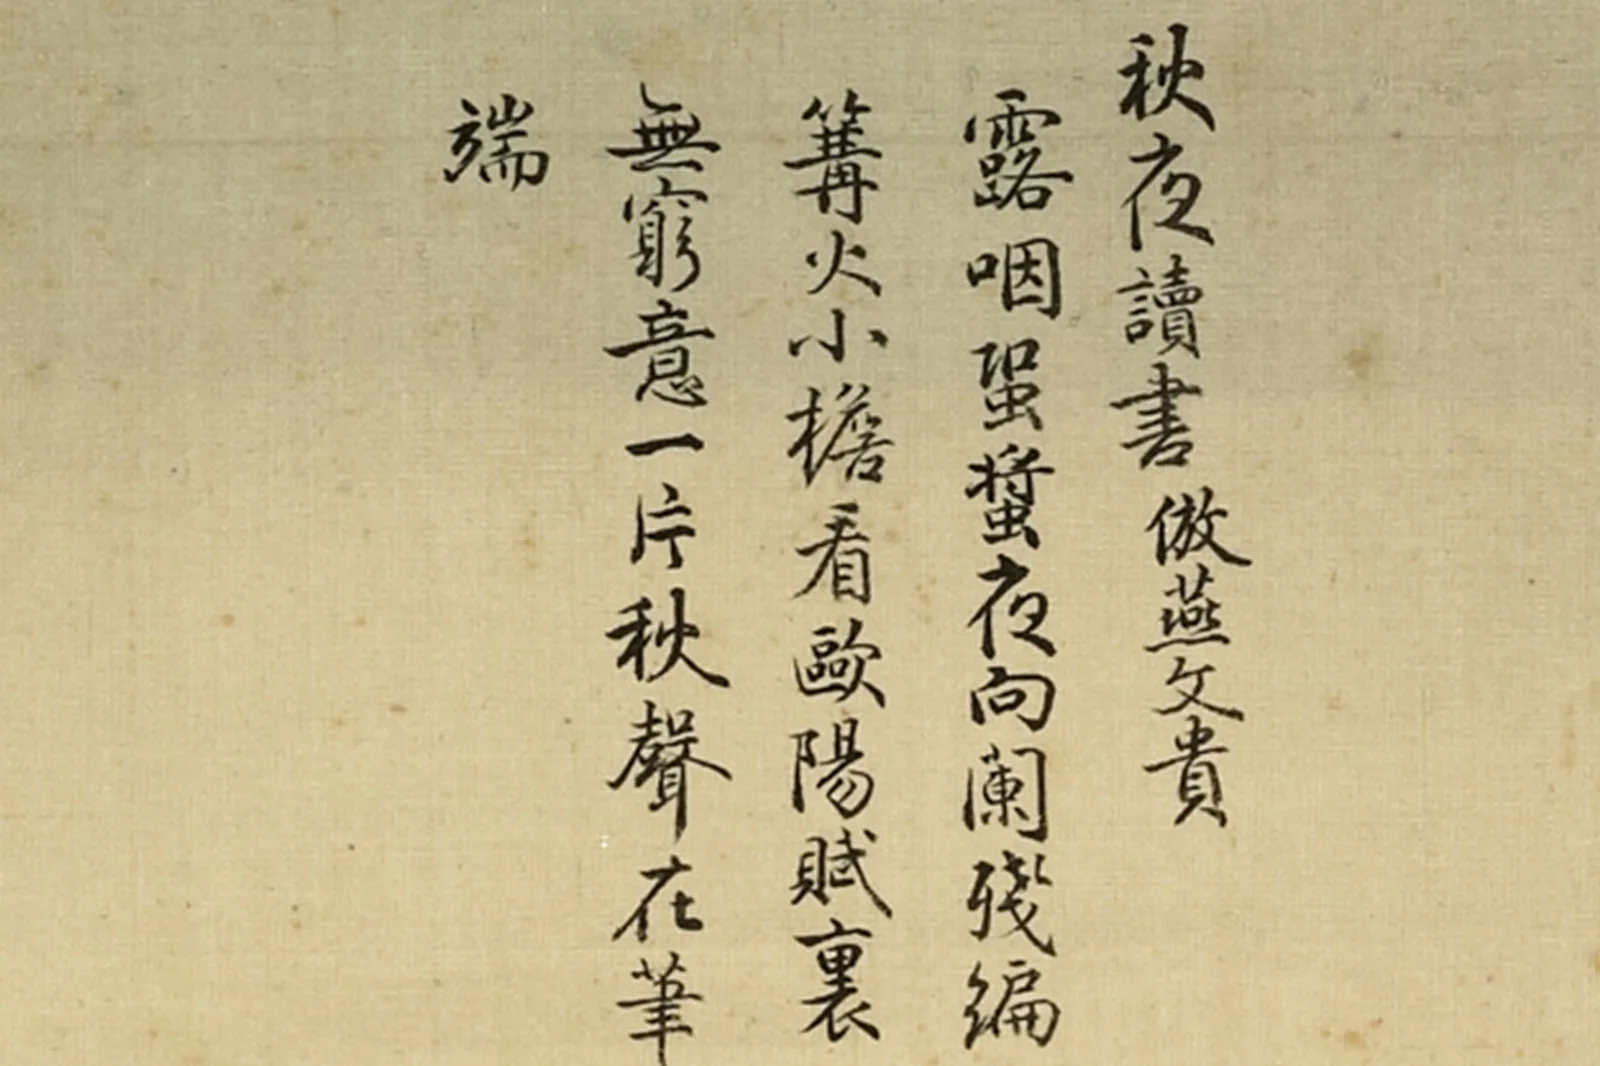 秋夜讀書倣燕文貴
露咽蛩螿夜向闌殘編
篝火小檐看歐陽賦裏
無窮意一片秋聲在筆
端